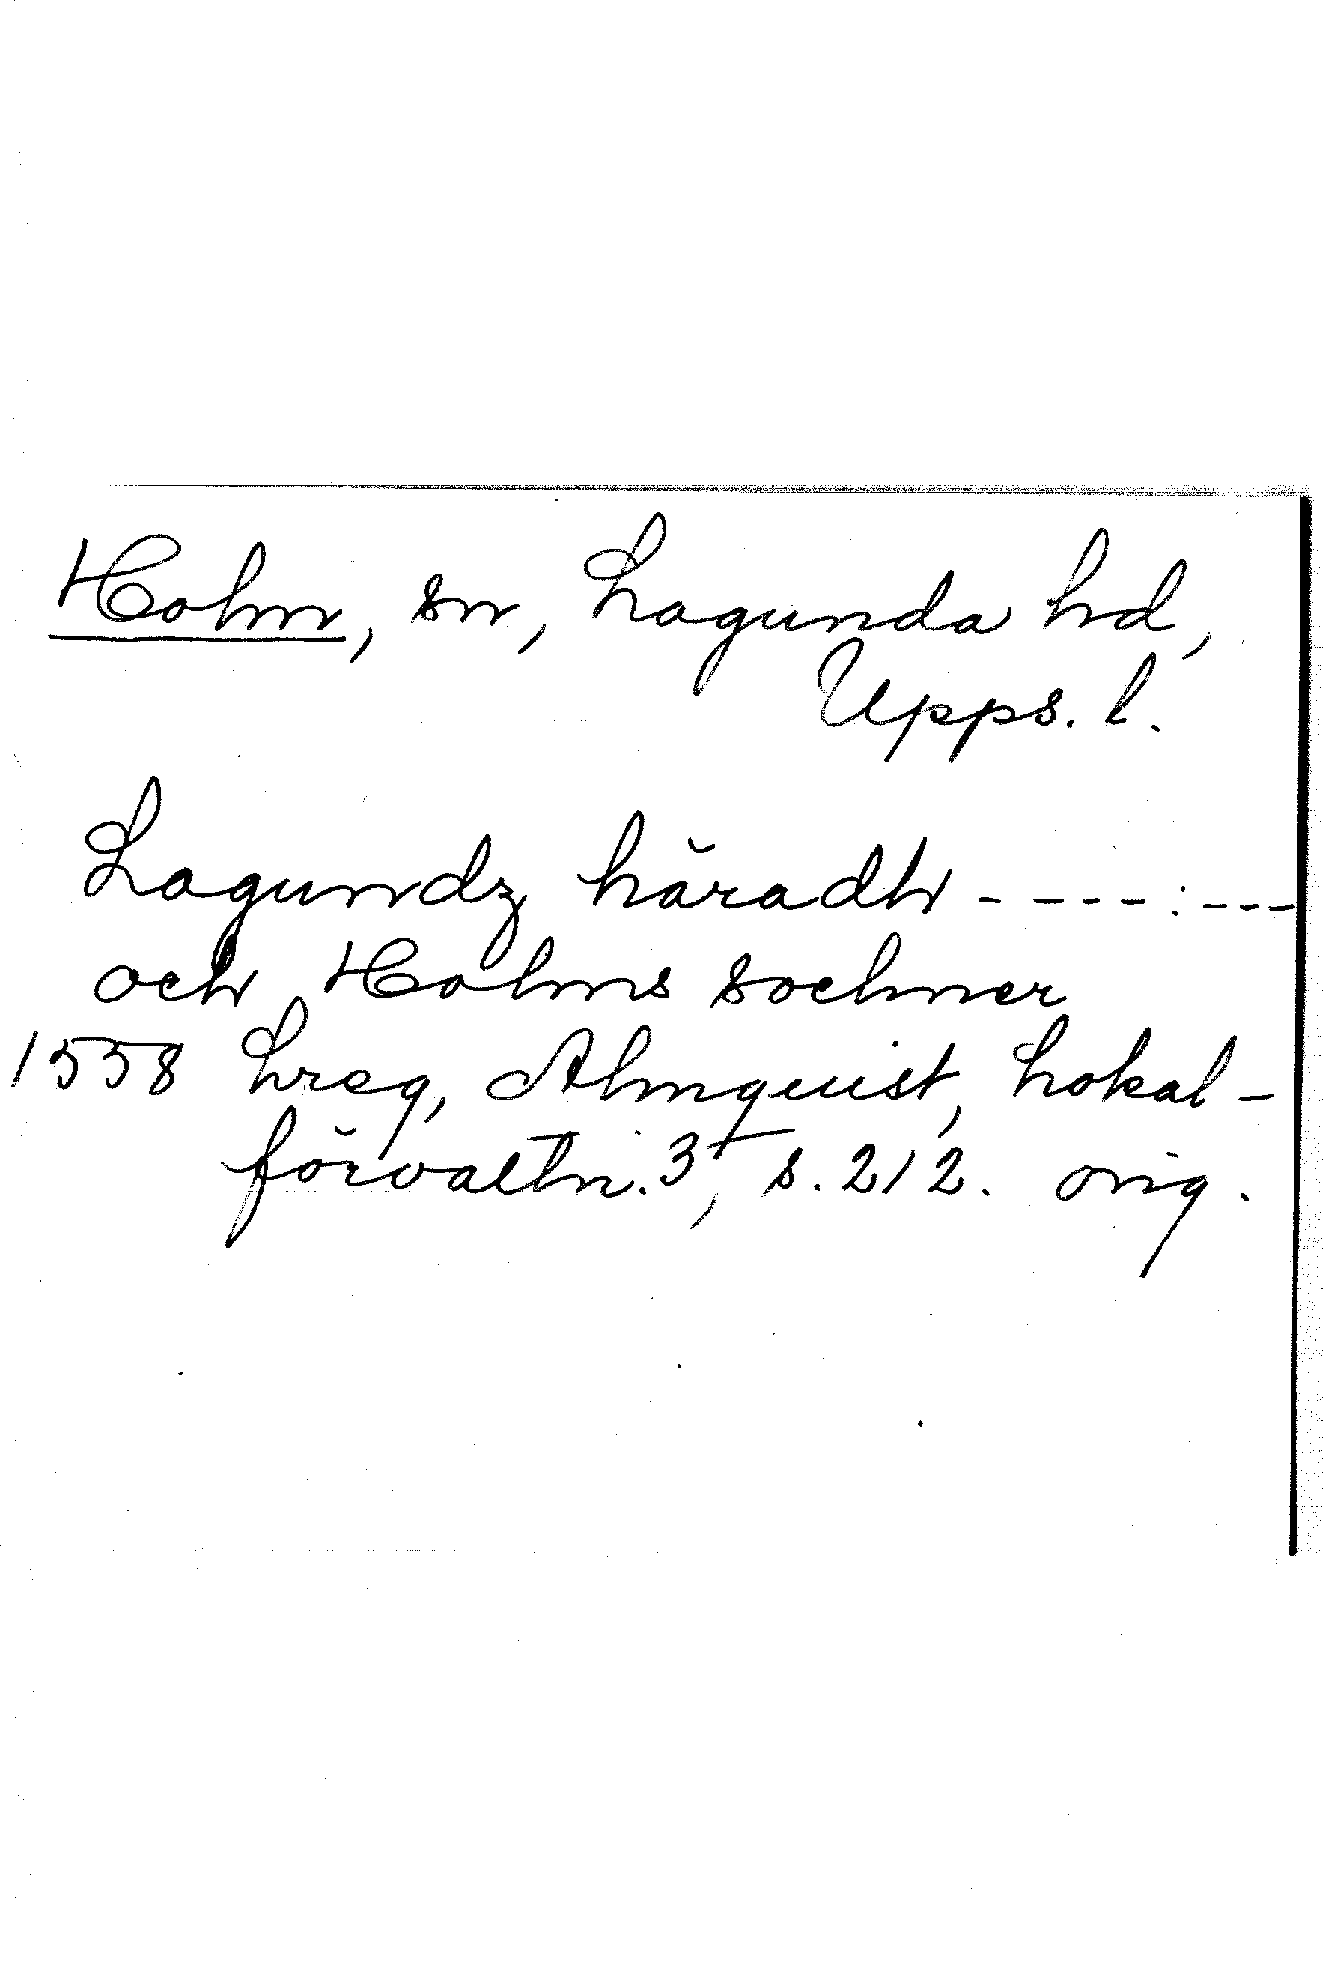 Holm, sn, Lagunda hd,
Upps. l.
Lagundz häradh - - - - : - - -
och Holms sochner
1558 Lreg, Almquist, Lokal-
förvaltn. 3, s. 212. orig.